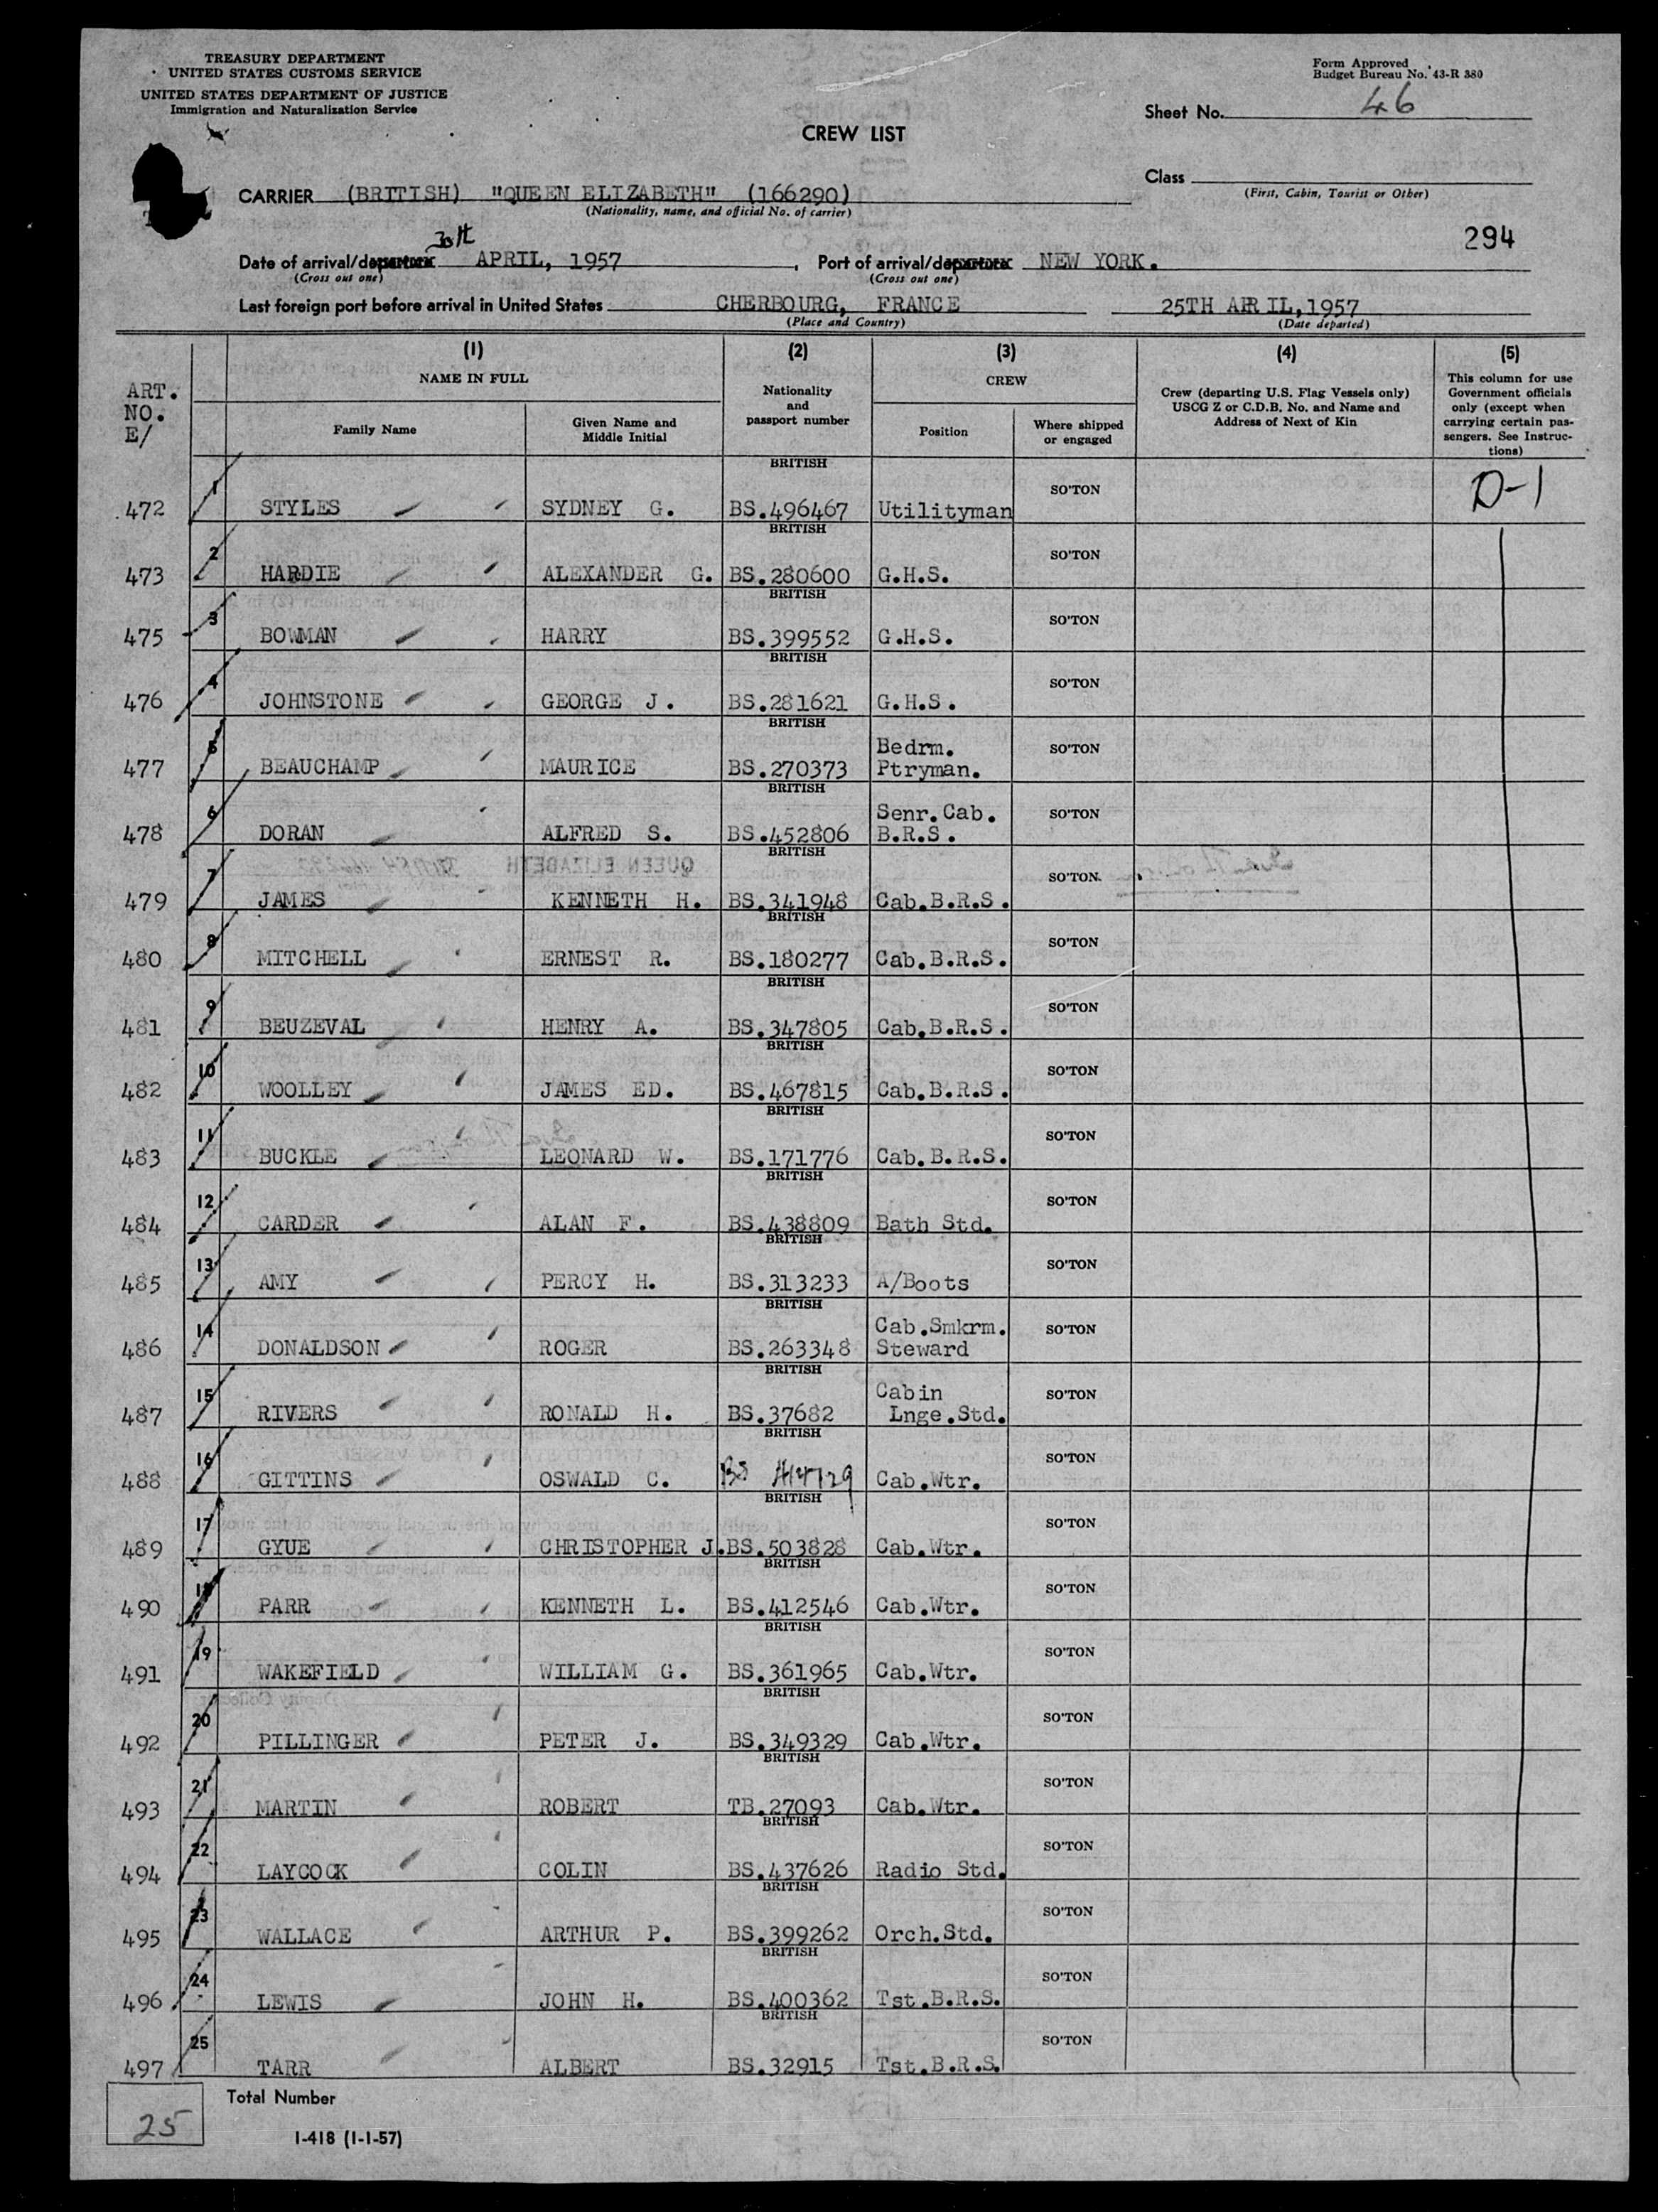 TREASURY DEPARTMENT
UNITED STATES CUSTOMS SERVICE
UNITED STATES DEPARTMENT OF JUSTICE
Immigration and Naturalization Service
Form Approved
Budget Bureau No. 43-R 380
Sheet No. 46
CREW LIST
Class
(First, Cabin, Tourist or Other)
CARRIER (BRITISH) "QUEEN ELIZABETH" (166290)
(Nationality, name, and official No. of carrier)
294
30th
Date of arrival/departure APRIL, 1957 , Port of arrival/departure NEW YORK.
(Cross out one) (Cross out one)
Last foreign port before arrival in United States CHERBOURG, FRANCE 25TH APRIL, 1957
(Place and Country) (Date departed)
ART. NO. E/
(1) NAME IN FULL
Family Name
Given Name and Middle Initial
(2) Nationality and passport number
(3) CREW
Position
Where shipped or engaged
(4) Crew (departing U.S. Flag Vessels only) USCG Z or C.D.B. No. and Name and Address of Next of Kin
(5) This column for use Government officials only (except when carrying certain passengers. See Instructions)
472 1 STYLES SYDNEY G. BRITISH BS.496467 Utilityman SO'TON D-1
473 2 HARDIE ALEXANDER G. BRITISH BS.280600 G.H.S. SO'TON
475 3 BOWMAN HARRY BRITISH BS.399552 G.H.S. SO'TON
476 4 JOHNSTONE GEORGE J. BRITISH BS.281621 G.H.S. SO'TON
477 5 BEAUCHAMP MAURICE BRITISH BS.270373 Bedrm. Ptryman. SO'TON
478 6 DORAN ALFRED S. BRITISH BS.452806 Senr.Cab. B.R.S. SO'TON
479 7 JAMES KENNETH H. BRITISH BS.341948 Cab.B.R.S. SO'TON
480 8 MITCHELL ERNEST R. BRITISH BS.180277 Cab.B.R.S. SO'TON
481 9 BEUZEVAL HENRY A. BRITISH BS.347805 Cab.B.R.S. SO'TON
482 10 WOOLLEY JAMES ED. BRITISH BS.467815 Cab.B.R.S. SO'TON
483 11 BUCKLE LEONARD W. BRITISH BS.171776 Cab.B.R.S. SO'TON
484 12 CARDER ALAN F. BRITISH BS.438809 Bath Std. SO'TON
485 13 AMY PERCY H. BRITISH BS.313233 A/Boots SO'TON
486 14 DONALDSON ROGER BRITISH BS.263348 Cab.Smkrm. Steward SO'TON
487 15 RIVERS RONALD H. BRITISH BS.37682 Cabin Lnge.Std. SO'TON
488 16 GITTINS OSWALD C. BRITISH BS Cab.Wtr. SO'TON
489 17 GYUE CHRISTOPHER J. BRITISH BS.503828 Cab.Wtr. SO'TON
490 18 PARR KENNETH L. BRITISH BS.412546 Cab.Wtr. SO'TON
491 19 WAKEFIELD WILLIAM G. BRITISH BS.361965 Cab.Wtr. SO'TON
492 20 PILLINGER PETER J. BRITISH BS.349329 Cab.Wtr. SO'TON
493 21 MARTIN ROBERT BRITISH TB.27093 Cab.Wtr. SO'TON
494 22 LAYCOCK COLIN BRITISH BS.437626 Radio Std. SO'TON
495 23 WALLACE ARTHUR P. BRITISH BS.399262 Orch.Std. SO'TON
496 24 LEWIS JOHN H. BRITISH BS.400362 Tst.B.R.S. SO'TON
497 25 TARR ALBERT BRITISH BS.32915 Tst.B.R.S. SO'TON
25 Total Number
I-418 (1-1-57)